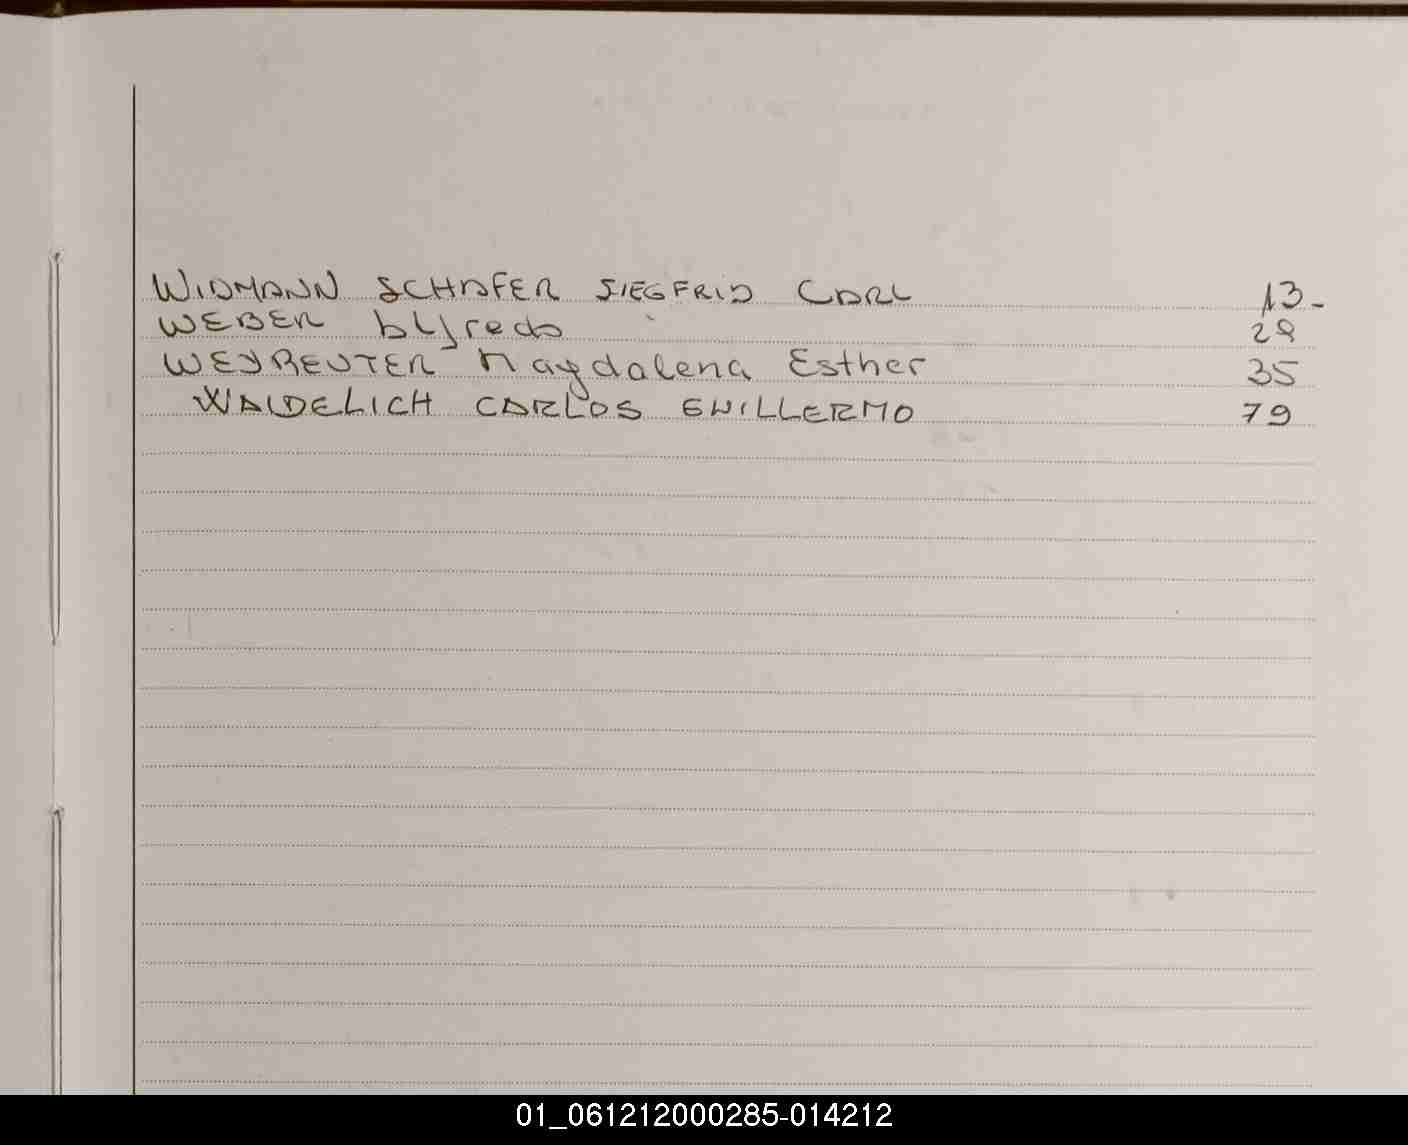 WIDMANN SCHAFER SIEGFRID CARL 13-
WEBER Alfredo 29
WEYREUTER Magdalena Esther 35
WAIDELICH CARLOS GUILLERMO 79
01_061212000285-014212